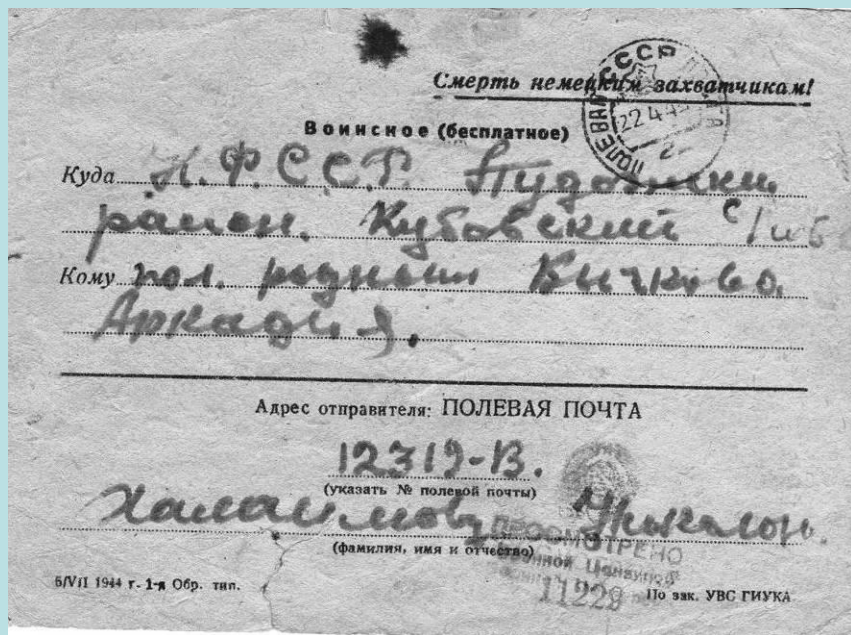 Смерть немецким захватчикам!
СССР
ПОЛЕВАЯ ПОЧТА
22 4 45
Воинское (бесплатное)
Куда К.Ф.С.С.Р. Пудожский
район. Кубовский с/
Кому пол. родным
Аркадия.
Адрес отправителя: ПОЛЕВАЯ ПОЧТА
12319-В.
(указать № полевой почты)
(фамилия, имя и отчество)
ПРОСМОТРЕНО
Военной Цензурой
11229
6/VII 1944 г. 1-я Обр. тип.
По зак. УВС ГИУКА